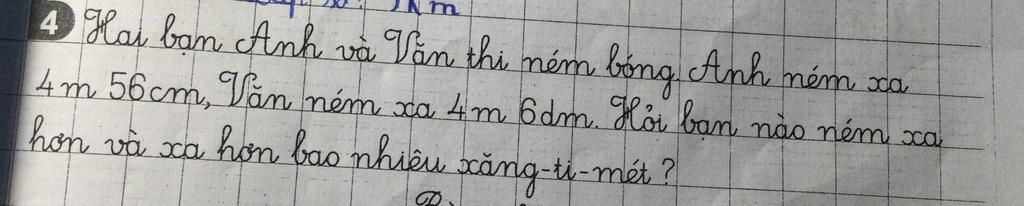 4 Hai bạn Anh và Văn thi ném bóng. Anh ném xa
4m 56cm, Văn ném xa 4m 6dm. Hỏi bạn nào ném xa
hơn và xa hơn bao nhiêu xăng-ti-mét?